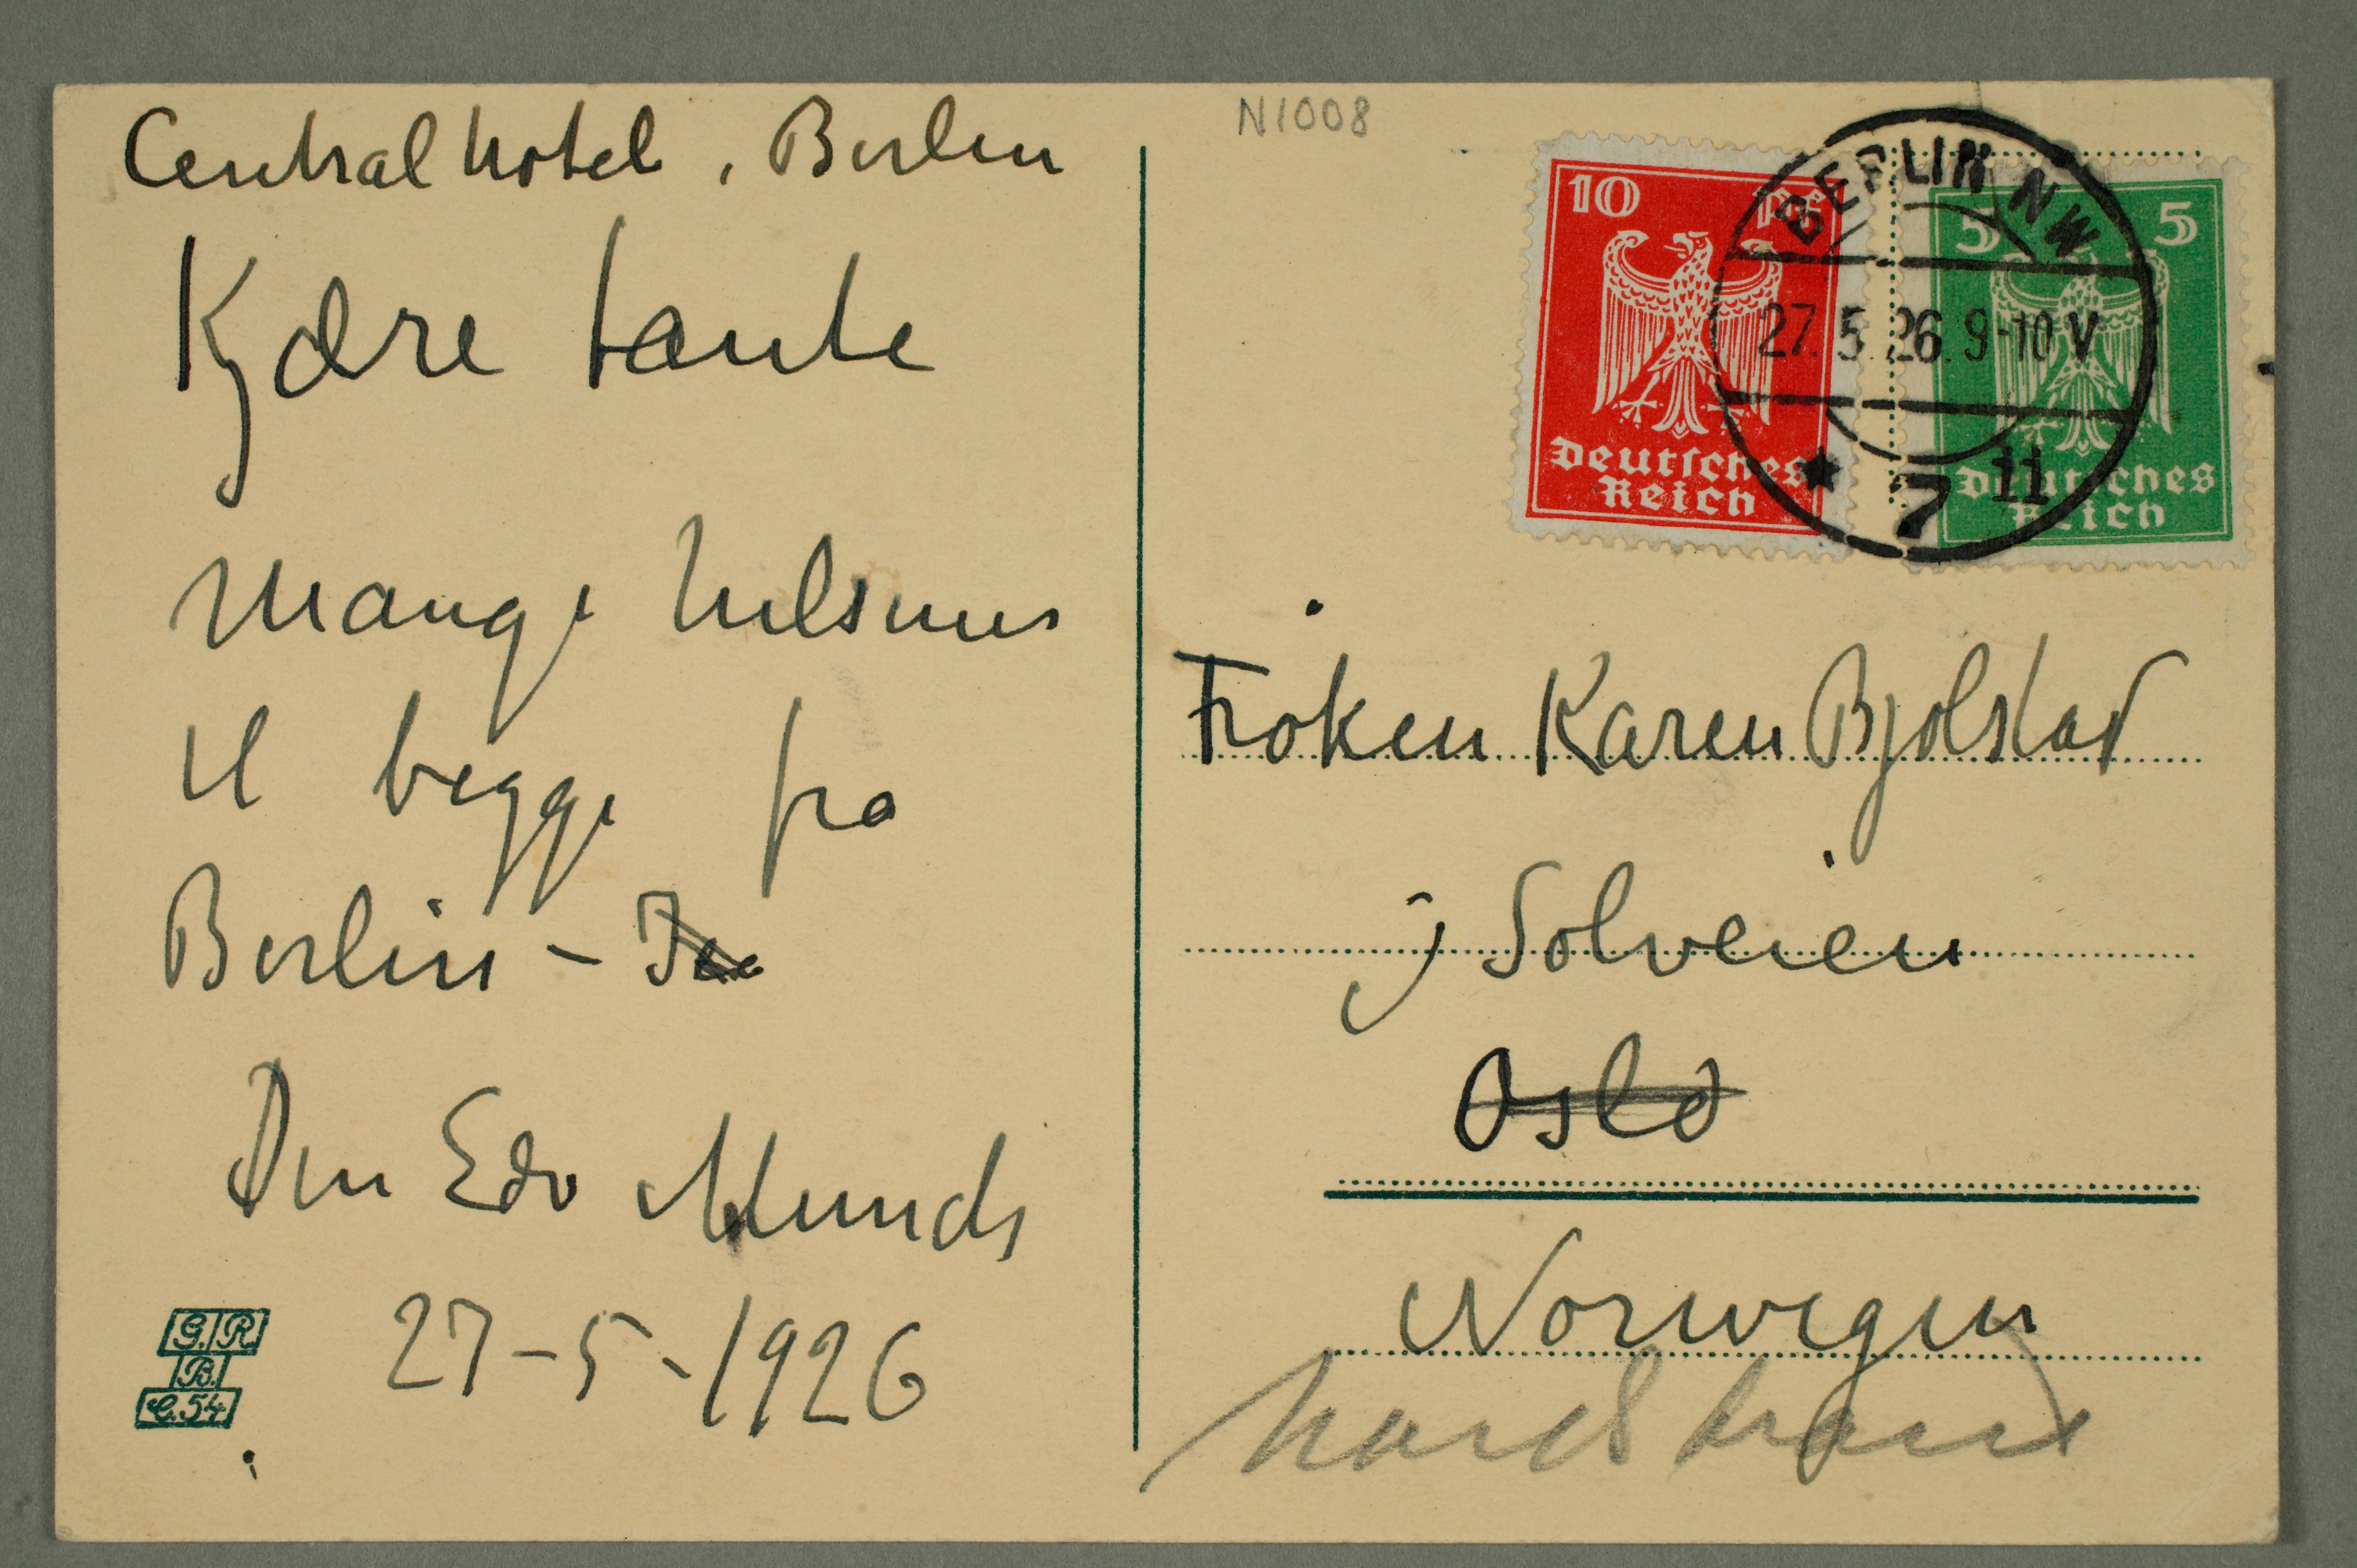 Centralhotel, Berlin
Kjære tante
Mange hilsener
til begge fra
Berlin –
Din Edv Munch
27-5-1926
G. R.
B.
C. 54
N1008
10 Pf
Deutsches
Reich
5 5
Deutsches
Reich
BERLIN NW
27.5.26.9-10 V
* 7 11
Frøken Karen Bjølstad
Solveien
Oslo
Norwegen
Nordstrand